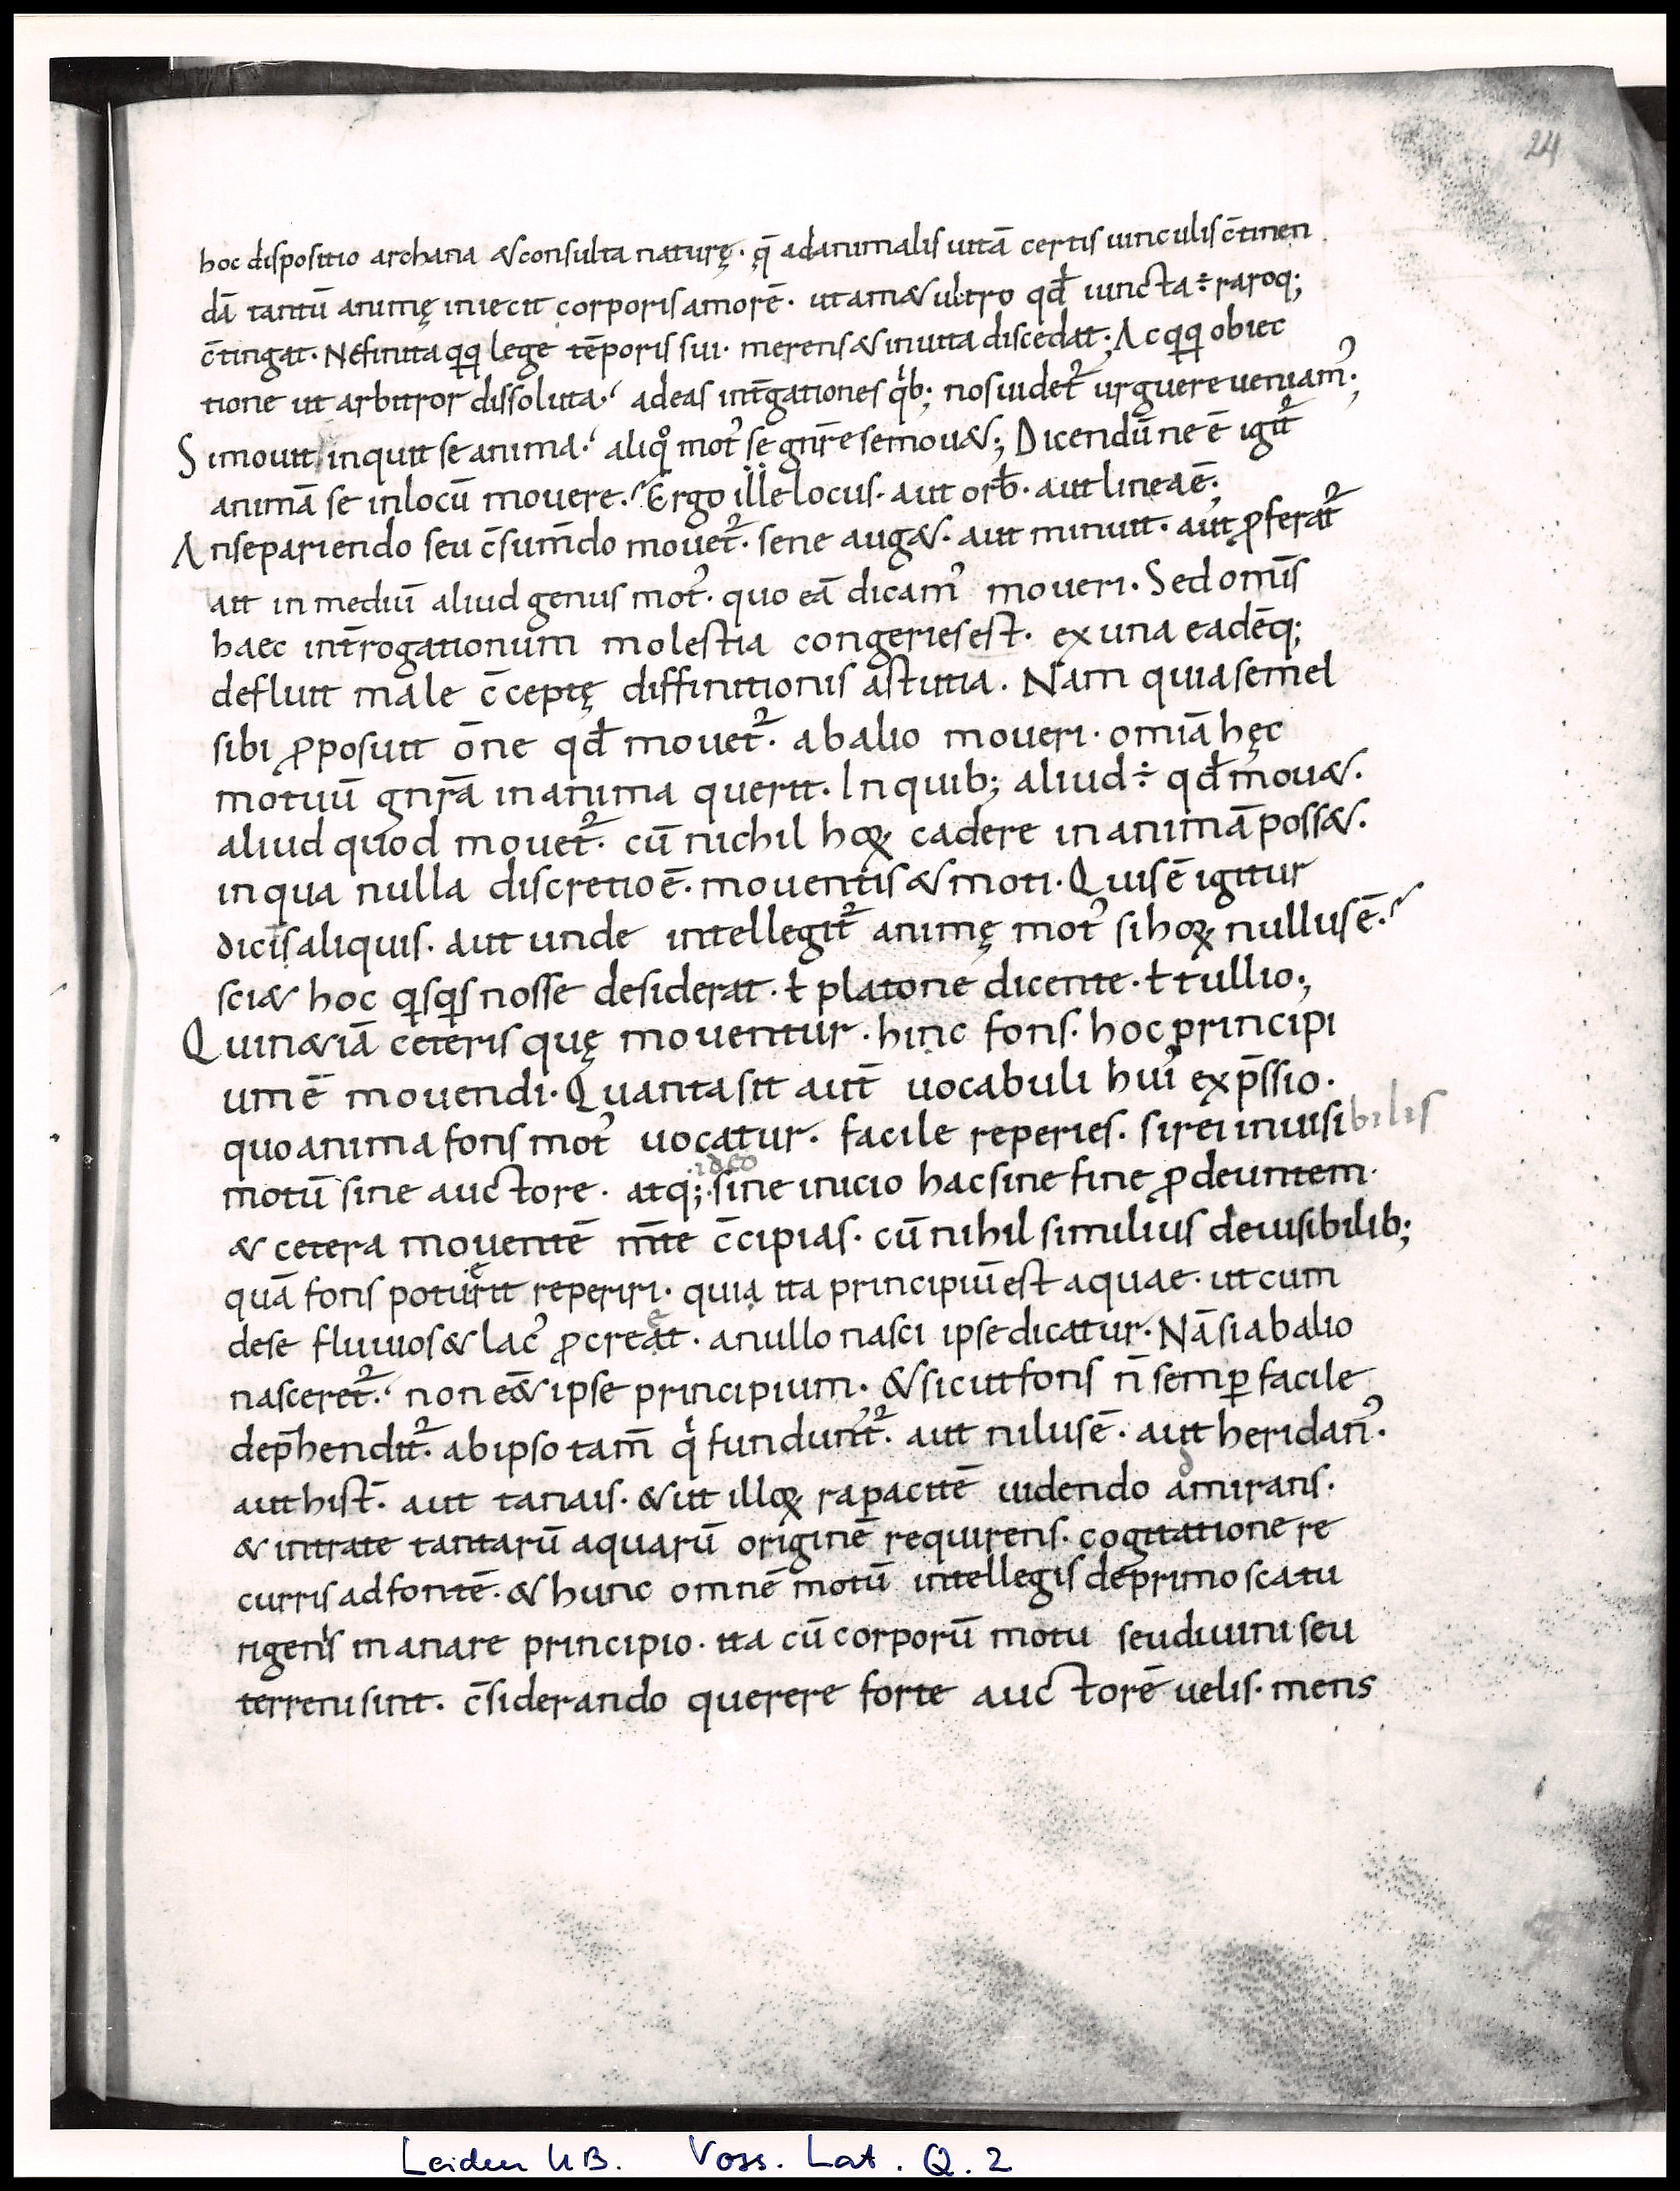 24
hoc dispositio archana &consulta naturę· q̄ adanimalis uitā certis uinculis c̄tinen
dā tantū animę iniecit corporis amorē· ut am& ultro qđ iuncta÷ raroq;
c̄tingat· Nefinita qq lege tēporis sui· merens& inuita discedat; Ac qq obiec
tione ut arbitror dissoluta·' adeas int̄gationes qͥb; nos uidet᷑ urguere ueniam᾽;
Simouit inquit se anima·' aliqͦ mot᾽ se gnr̄e se mou&; Dicendūne ē igit᷑
animā se inlocū mouere·' Ergo ille locus· aut orb̄· aut lineaē·;
Anse pariendo seu c̄sum̄do mouet᷑· sene aug&· aut minuit· aut ꝓferat᷑
ait in mediū aliud genus mot᾽· quo eā dicam᾽ moueri· Sed omīs
haec int̄rogationum molestia congeries est· ex una eadēq;
defluit male c̄ceptę diffinitionis astutia· Nam quia semel
sibi ꝓposuit ōne qđ mouet᷑· abalio moueri· omīa hęc
motuū gnr̄a in anima querit· In quib; aliud÷ qđ mou&·
aliud quod mouet᷑· cū nichil hoꝝ cadere in animā poss&·
in qua nulla discretio ē· mouentis & moti· Quis ē igitur
dicis aliquis· aut unde intellegit᷑ animę mot᾽ si hoꝝ nullus ē·'
sci& hoc qisqis nosse desiderat· ł platone dicente· ł tullio·;
Quin&iā ceteris quę mouentur· hinc fons· hoc principi
um ē mouendi· Quanta sit aut̄ uocabuli hui᾽ exp̄ssio·
quo anima fons mot᾽ uocatur· facile reperies· si rei inuisibilis
ideo
motū sine auctore· atq;· sine inicio hac sine fine ꝓdeuntem·
& cetera mouentē m̄te c̄cipias· cū nihil similius de uisibilib;
e
quā fons poturit reperiri· quia ita principiū est aquae· ut cum
e
de se fluuios & lac᾽ ꝓcreat· a nullo nasci ipse dicatur· Nā si abalio
nasceret᷑·' non eē& ipse principium· & sicut fons n̄ semꝑ facile
dep̄hendit᷑· abipso tam̄ qͥ fundunt᷑· aut nilus ē· aut heridan᾽·
d
aut hist̄· aut tanais· & ut illoꝝ rapacitē uidendo amirans·
& intra te tantarū aquarū originē requirens· cogitatione re
curris ad fontē· & hunc omnē motū intellegis de primo scatu
rigenis manare principio· ita cū corporū motu seu diuini seu
terreni sint· c̄siderando querere forte auctorē uelis· mens
Leiden UB. Voss. Lat. Q. 2